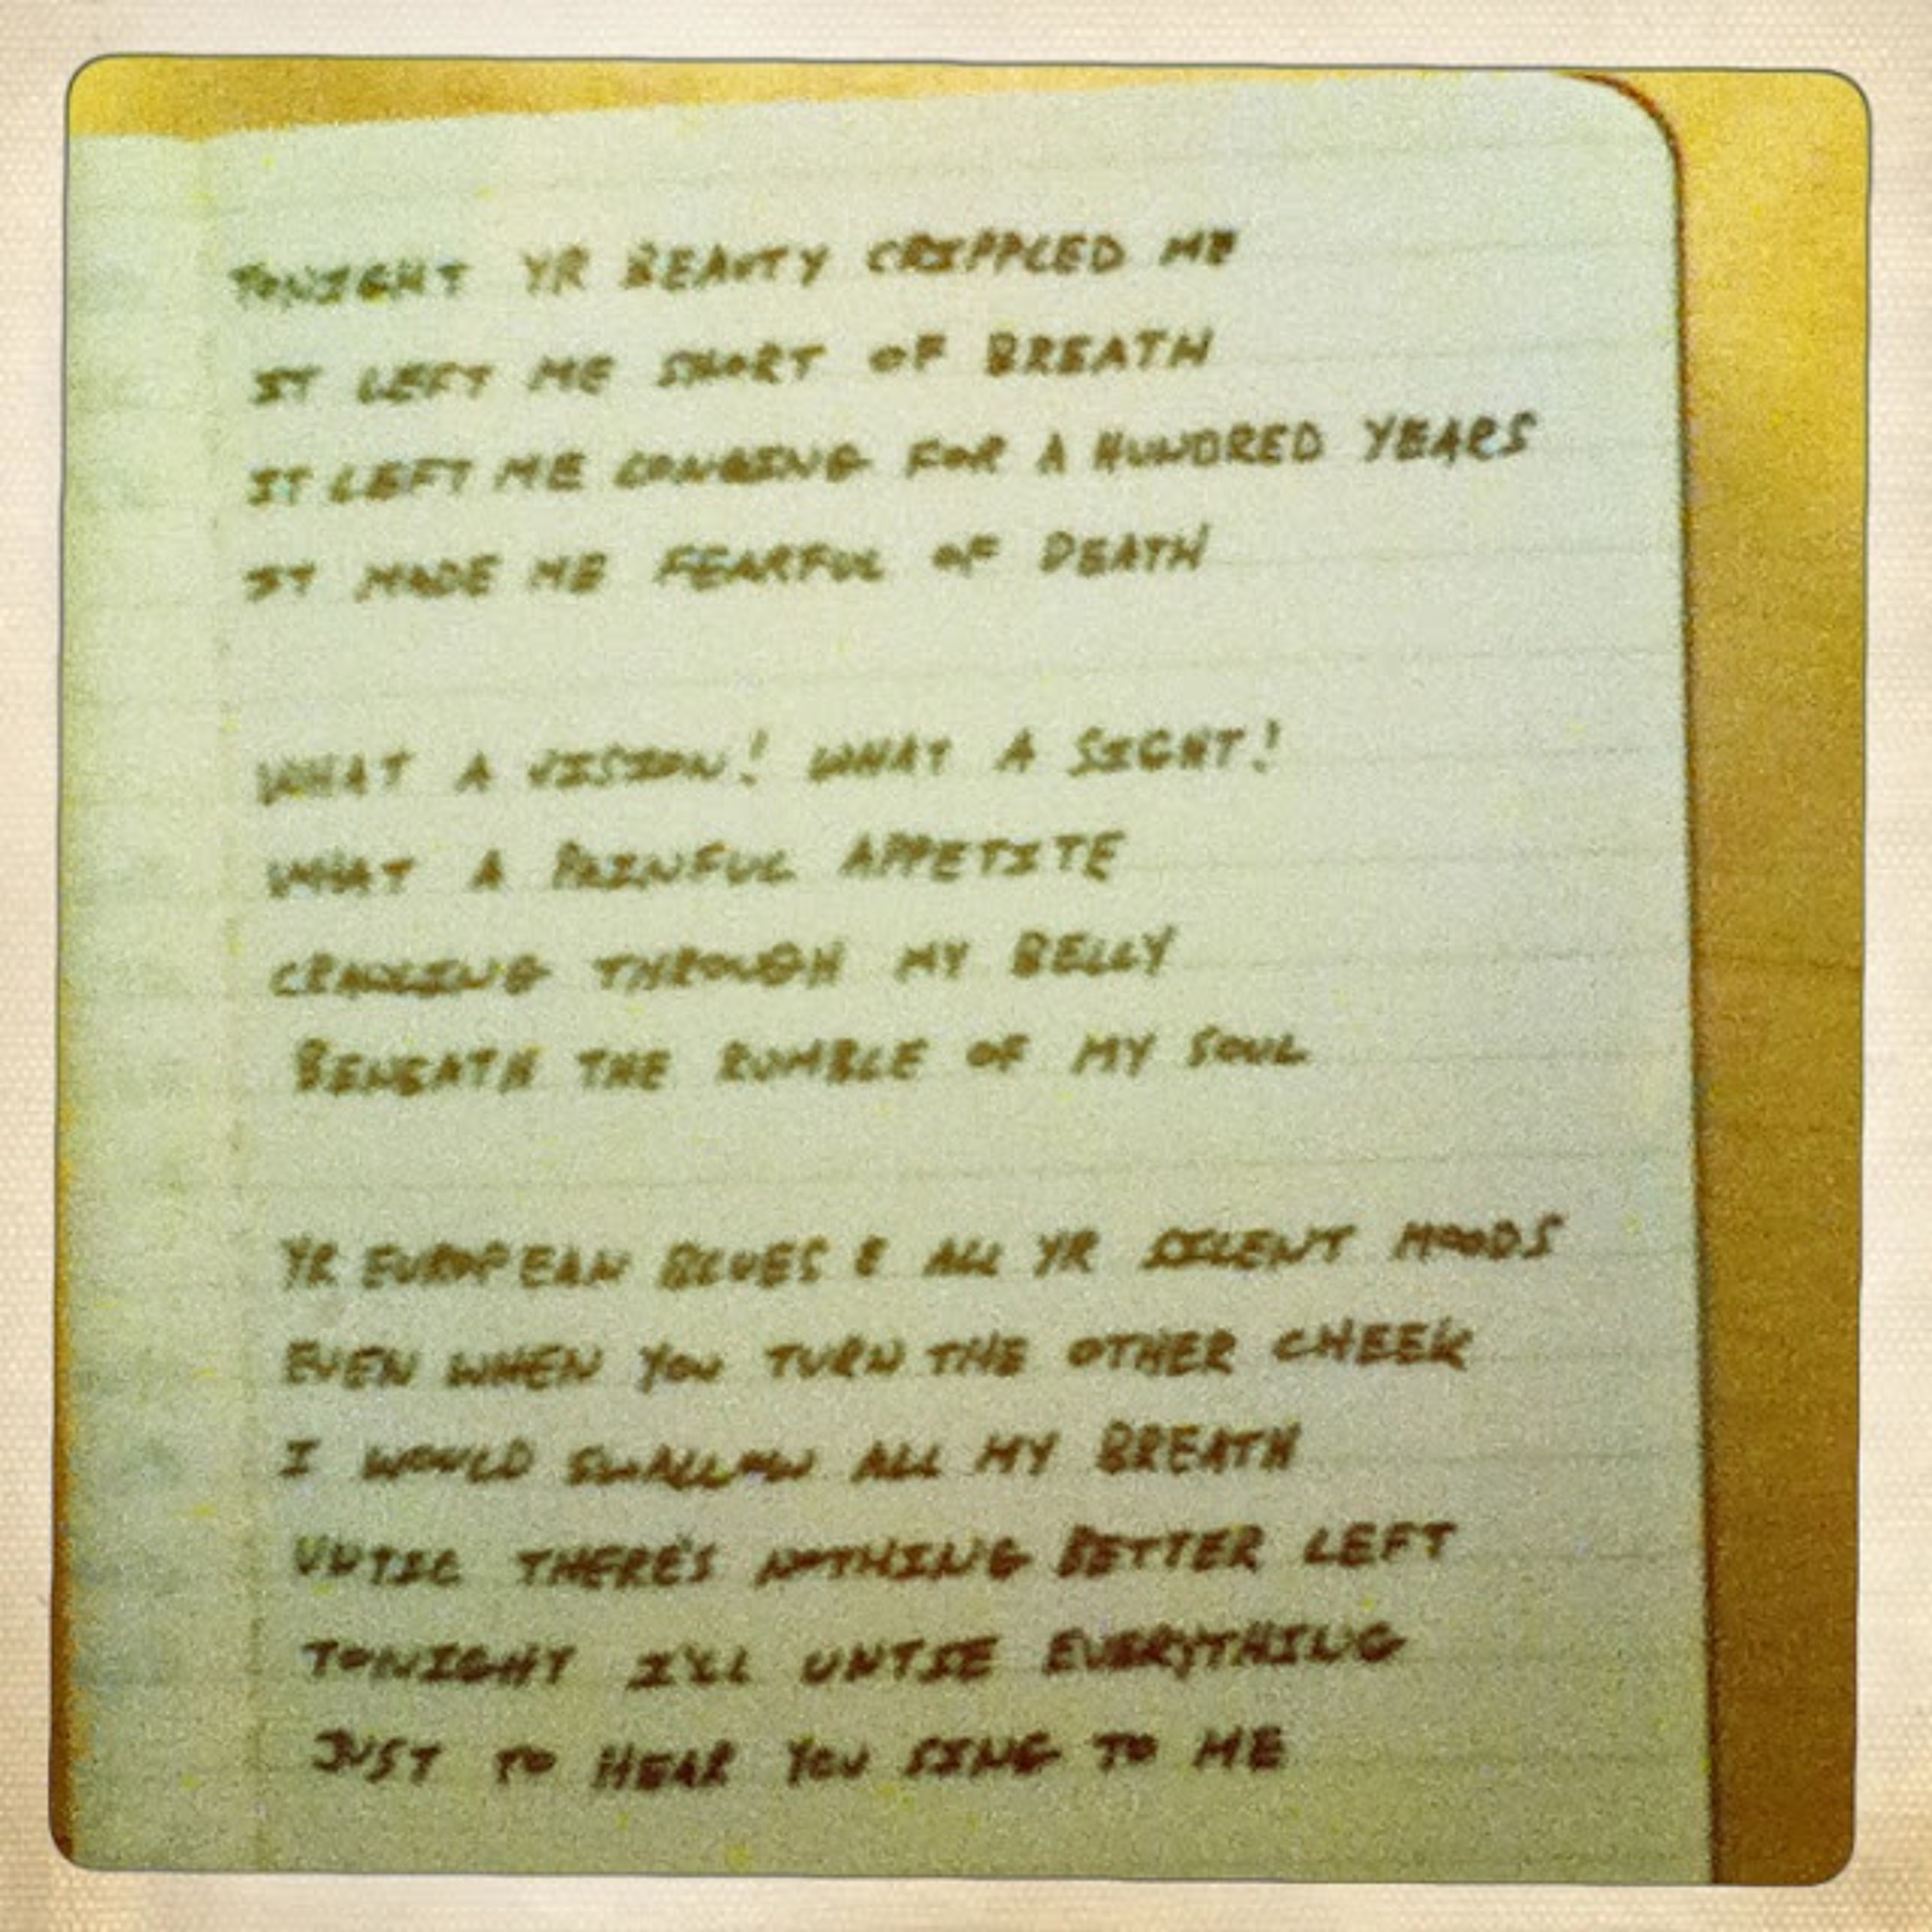 TONIGHT YR BEAUTY CRIPPLED ME
IT LEFT ME SHORT OF BREATH
IT LEFT ME LONGING FOR A HUNDRED YEARS
IT MADE ME FEARFUL OF DEATH
WHAT A VISION! WHAT A SIGHT!
WHAT A PAINFUL APPETITE
CRAWLING THROUGH MY BELLY
BENEATH THE RUMBLE OF MY SOUL
YR EUROPEAN BLUES & ALL YR SILENT MOODS
EVEN WHEN YOU TURN THE OTHER CHEEK
I WOULD SWALLOW ALL MY BREATH
UNTIL THERE'S NOTHING BETTER LEFT
TONIGHT I'LL UNTIE EVERYTHING
JUST TO HEAR YOU SING TO ME